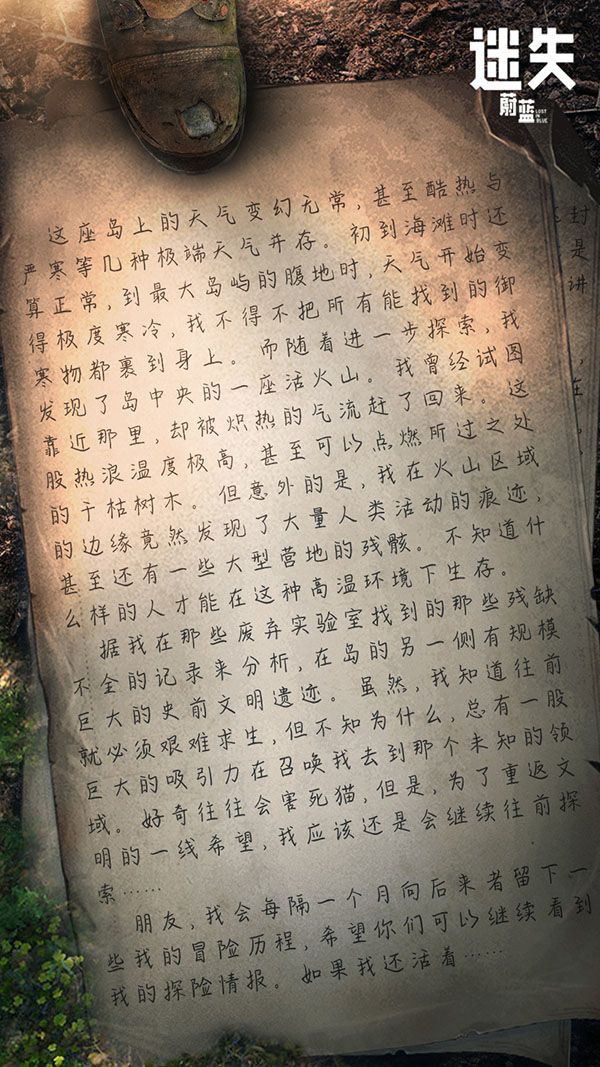 迷失
蔚蓝
LOST
IN
BLUE
这座岛上的天气变幻无常，甚至酷热与
严寒等几种极端天气并存。初到海滩时还
算正常，到最大岛屿的腹地时，天气开始变
得极度寒冷，我不得不把所有能找到的御
寒物都裹到身上。而随着进一步探索，我
发现了岛中央的一座活火山。我曾经试图
靠近那里，却被炽热的气流赶了回来。这
股热浪温度极高，甚至可以点燃所过之处
的干枯树木。但意外的是，我在火山区域
的边缘竟然发现了大量人类活动的痕迹，
甚至还有一些大型营地的残骸。不知道什
么样的人才能在这种高温环境下生存。
据我在那些废弃实验室找到的那些残缺
不全的记录来分析，在岛的另一侧有规模
巨大的史前文明遗迹。虽然，我知道往前
就必须艰难求生，但不知为什么，总有一股
巨大的吸引力在召唤我去到那个未知的领
域。好奇往往会害死猫，但是，为了重返文
明的一线希望，我应该还是会继续往前探
索……
朋友，我会每隔一个月向后来者留下一
些我的冒险历程，希望你们可以继续看到
我的探险情报。如果我还活着……
封
是
讲